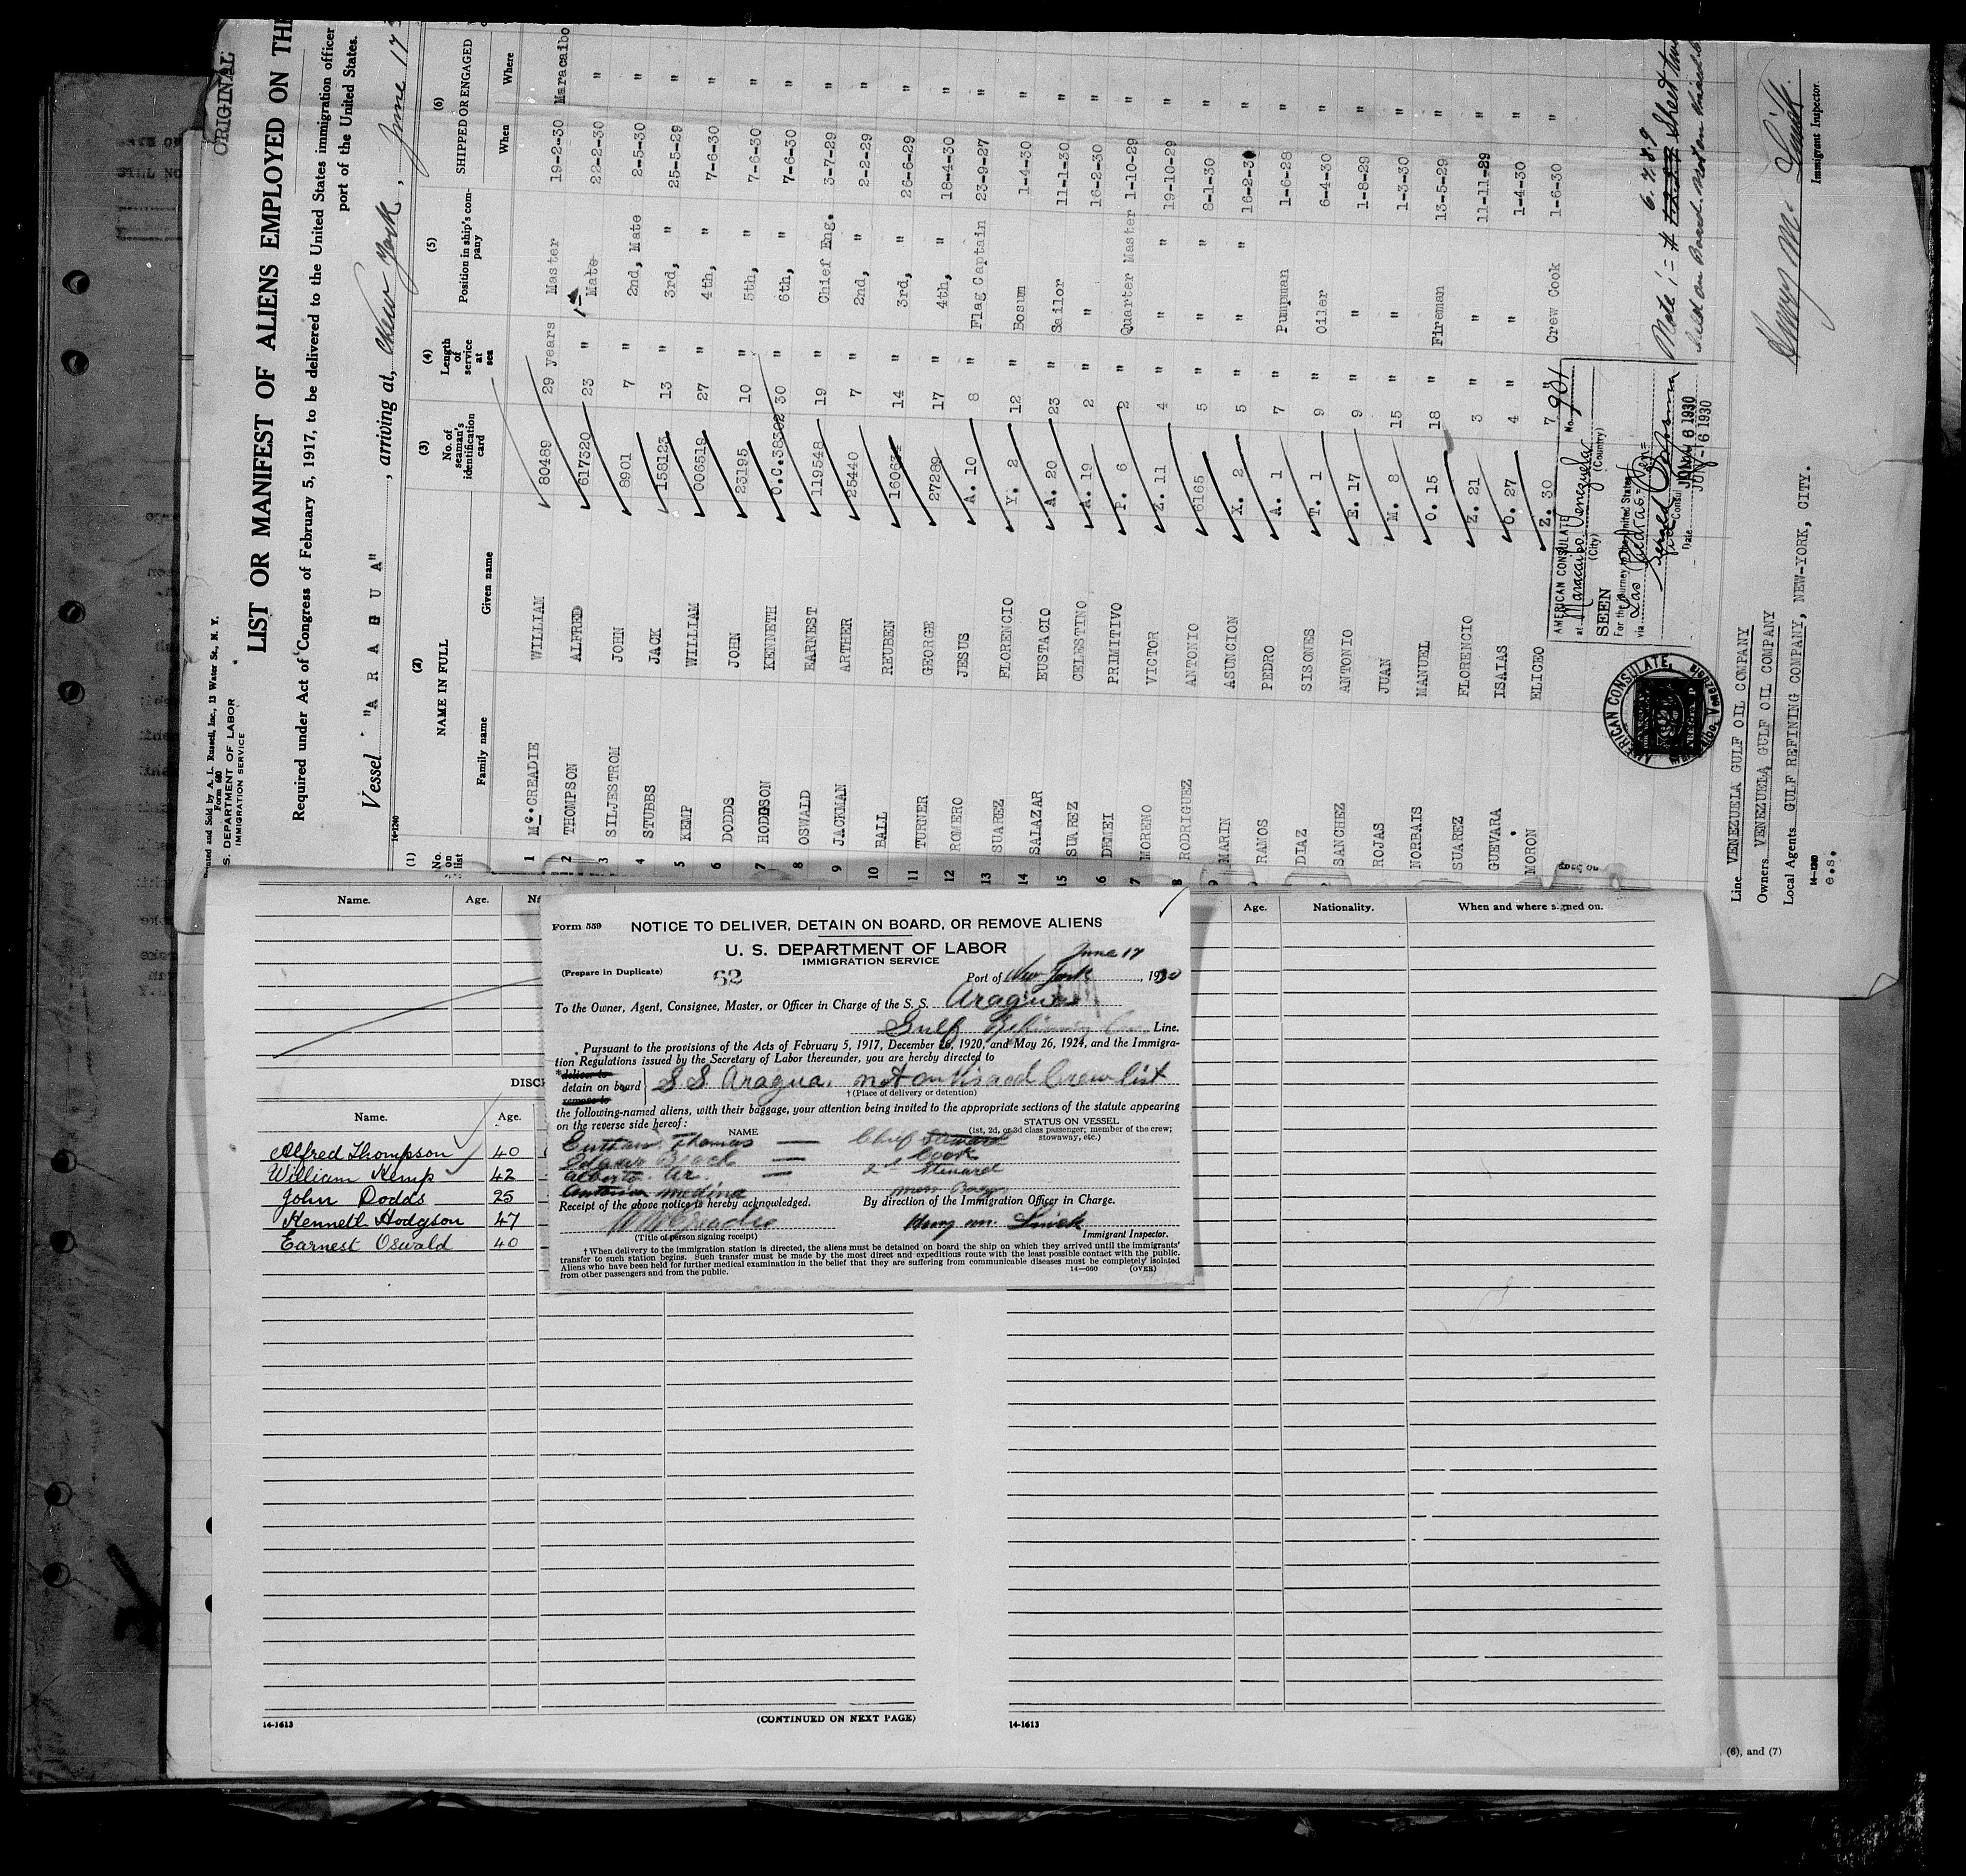 ORIGINAL
Printed and Sold by A. L. Russell, Inc., 13 Water St., N. Y.
Form 680
S. DEPARTMENT OF LABOR
IMMIGRATION SERVICE
LIST OR MANIFEST OF ALIENS EMPLOYED ON TH
Required under Act of Congress of February 5, 1917, to be delivered to the United States immigration officer
port of the United States.
Vessel "ARAGUA", arriving at, New York, June 17
14-1240
(1) (2) (3) (4) (5) (6)
No. on list NAME IN FULL No. of seaman's identification card Length of service at sea Position in ship's company SHIPPED OR ENGAGED
Family name Given name When Where
1 Mc.CREADIE WILLIAM 80489 29 years Master 19-2-30 Maracaibo
2 THOMPSON ALFRED 617320 23 " Mate 22-2-30 "
3 SILJESTROM JOHN 8901 7 " 2nd, Mate 2-5-30 "
4 STUBBS JACK 158123 13 " 3rd, " 25-5-29 "
5 KEMP WILLIAM 006519 27 " 4th, " 7-6-30 "
6 DODDS JOHN 23195 10 " 5th, " 7-6-30 "
7 HODGSON KENNETH O.C.38392 30 " 6th, " 7-6-30 "
8 OSWALD EARNEST 119548 19 " Chief Eng. 3-7-29 "
9 JACKMAN ARTHER 25440 7 " 2nd, " 2-2-29 "
10 BALL REUBEN 14 " 3rd, " 26-6-29 "
11 TURNER GEORGE 27289 17 " 4th, " 18-4-30 "
12 ROMERO JESUS A. 10 8 " Flag Captain 23-9-27 "
13 SUAREZ FLORENCIO Y. 2 12 " Bosum 1-4-30 "
14 SALAZAR EUSTACIO A. 20 23 " Sailor 11-1-30 "
15 SUAREZ CELESTINO A. 19 2 " " 16-2-30 "
16 DEMEI PRIMITIVO P. 6 2 " Quarter Master 1-10-29 "
7 MORENO VICTOR Z. 11 4 " " 19-10-29 "
8 RODRIGUEZ ANTONIO 6165 5 " " 8-1-30 "
9 MARIN ASUNCION X. 2 5 " " 16-2-30 "
RAMOS PEDRO A. 1 7 " Pumpman 1-6-28 "
DIAZ SISONES T. 1 9 " Oiler 6-4-30 "
SANCHEZ ANTONIO E. 17 9 " " 1-8-29 "
ROJAS JUAN M. 8 15 " " 1-3-30 "
NORBAIS MANUEL O. 15 18 " Fireman 13-5-29 "
SUAREZ FLORENCIO Z. 21 3 " " 11-11-29 "
GUEVARA ISAIAS O. 27 4 " " 1-4-30 "
MORON ELICEO Z. 30 7 " Crew Cook 1-6-30 "
AMERICAN CONSULATE No. 901
at Maracaibo Venezuela
(City) (Country)
SEEN
For the journey to the United States
via Las Piedras
Date JUN - 6 1930
AMERICAN CONSULATE,
Venezuela
Note :- # 6. 7. 8. 9 Sheet two
Held on Board. not on visaed
Line VENEZUELA GULF OIL COMPANY
Owners VENEZUELA GULF OIL COMPANY
Local Agents GULF REFINING COMPANY, NEW-YORK, CITY.
14-1240
e.s.
Immigrant Inspector.
Name. Age.
Age. Nationality. When and where signed on.
DISCH
Name. Age.
Alfred Thompson 40
William Kemp 42
John Dodds 25
Kenneth Hodgson 47
Earnest Oswald 40
Form 559 NOTICE TO DELIVER, DETAIN ON BOARD, OR REMOVE ALIENS
U. S. DEPARTMENT OF LABOR
IMMIGRATION SERVICE
(Prepare in Duplicate) 62
June 17
Port of New York, 1930
To the Owner, Agent, Consignee, Master, or Officer in Charge of the S. S. Aragua
Gulf Refining Co. Line.
Pursuant to the provisions of the Acts of February 5, 1917, December 26, 1920, and May 26, 1924, and the Immigra-
tion Regulations issued by the Secretary of Labor thereunder, you are hereby directed to
*deliver to
detain on board S S Aragua. not on visaed Crew list
remove to
†(Place of delivery or detention)
the following-named aliens, with their baggage, your attention being invited to the appropriate sections of the statute appearing
on the reverse side hereof:
NAME STATUS ON VESSEL
(1st, 2d, or 3d class passenger; member of the crew; stowaway, etc.)
Thomas — Chief Steward
Edgar — Cook
Alberto — 2d Steward
Antonio Medina Mess Boy
Receipt of the above notice is hereby acknowledged. By direction of the Immigration Officer in Charge.
W McCreadie
(Title of person signing receipt) Immigrant Inspector.
† When delivery to the immigration station is directed, the aliens must be detained on board the ship on which they arrived until the immigrants'
transfer to such station begins. Such transfer must be made by the most direct and expeditious route with the least possible contact with the public.
Aliens who have been held for further medical examination in the belief that they are suffering from communicable diseases must be completely isolated
from other passengers and from the public. 14-660 (OVER)
14-1613 (CONTINUED ON NEXT PAGE) 14-1613
(6), and (7)